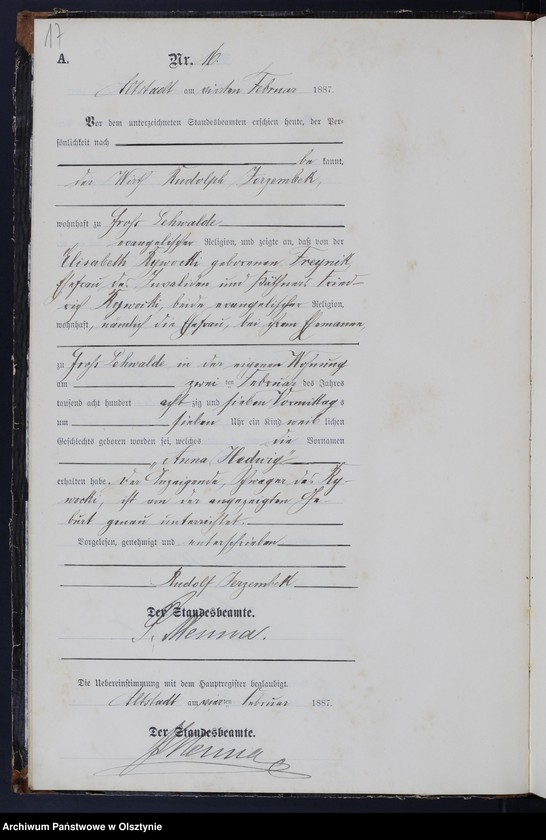 17
A. Nr. 16
Altstadt am vierten Februar 1887.
Vor dem unterzeichneten Standesbeamten erschien heute, der Per-
sönlichkeit nach
be kannt,
der Wirth Rudolph Jerzembek,
wohnhaft zu Groß Lehwalde
evangelischer Religion, und zeigte an, daß von der
Elisabeth Kywocki geborenen Freynik
Ehefrau des Invaliden und Käthners Fried-
rich Kywocki, beide evangelischer Religion,
wohnhaft, nämlich die Ehefrau, bei ihrem Ehemanne,
zu Groß Lehwalde in der eigenen Wohnung
am zwei ten Februar des Jahres
tausend acht hundert acht zig und sieben Vormittags
um sieben Uhr ein Kind weib lichen
Geschlechts geboren worden sei, welches die Vornamen
"Anna Hedwig"
erhalten habe. Der Anzeigende, Schwager des Ky-
wocki, ist von der angezeigten Ge-
burt genau unterrichtet.
Vorgelesen, genehmigt und unterschrieben
Rudolf Jerzembek
Der Standesbeamte.
Menna.
Die Uebereinstimmung mit dem Hauptregister beglaubigt.
Altstadt am vier ten Februar 1887.
Der Standesbeamte.
Menna
Archiwum Państwowe w Olsztynie